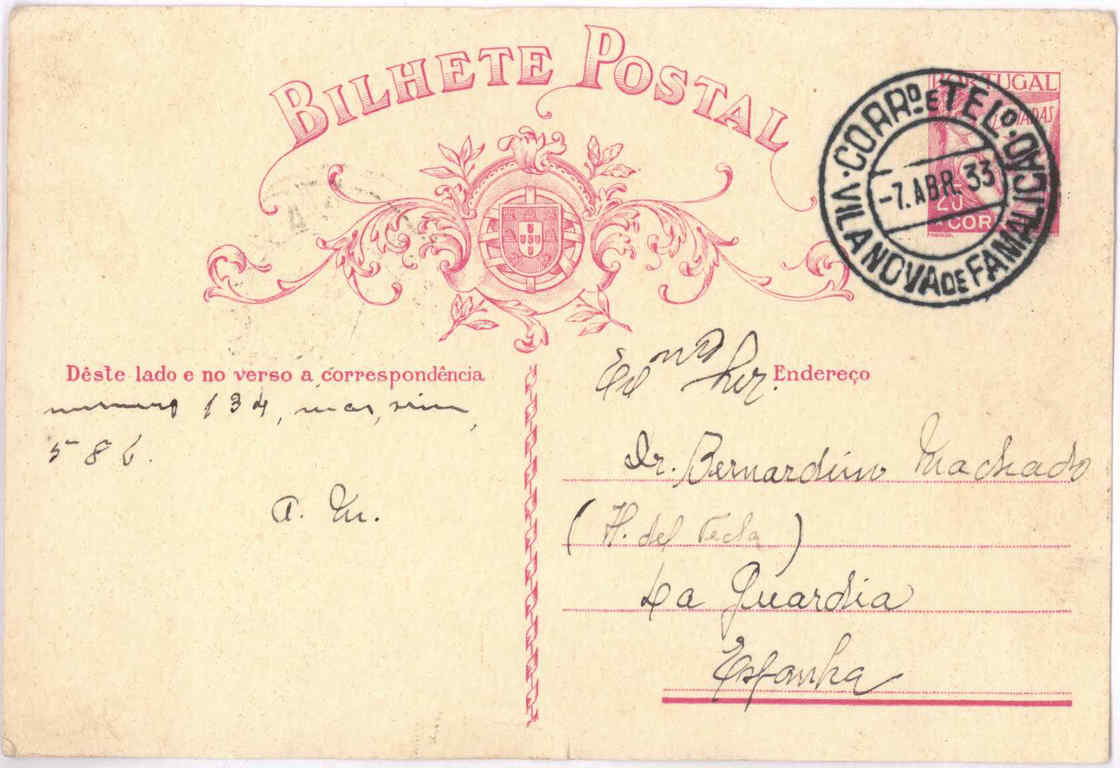 BILHETE POSTAL
PORTUGAL
CORRO E TELO. VILA NOVA DE FAMALICÃO
-7. ABR. 33
COR
Dêste lado e no verso a correspondência
numero 134, mas, sim,
586.
A. M.
Endereço
Dr. Bernardino Machado
(H. del Tecla)
La Guardia
Espanha